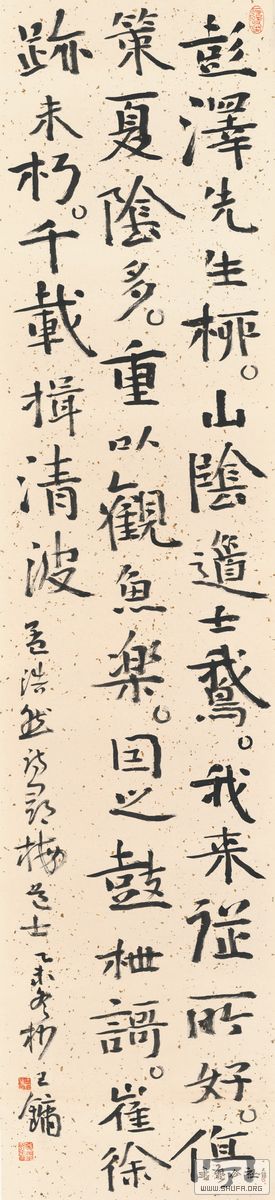 彭澤先生柳。山陰道士鵝。我来從所好。停
策夏陰多。重以觀魚楽。因之鼓枻謌。崔徐
跡未朽。千載揖清波
孟浩然詩尋梅道士 乙未冬杪 王鏞
WWW.SHUFA.ORG